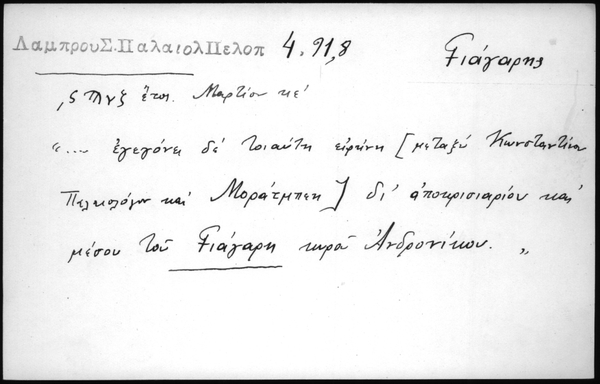 ΛαμπρουΣ.ΠαλαιολΠελοπ 4.91,8
Γιάγαρης
͵ϛ ϡνζ ἔτει. Μαρτίου κε΄
“.... ἐγεγόνει δὲ τοιαύτη εἰρήνη [μεταξὺ Κωνσταντίνου
Παλαιολόγου καὶ Μοράτμπεη] δι’ ἀποκρισιαρίου καὶ
μέσου τοῦ Γιάγαρη κυροῦ Ἀνδρονίκου. „